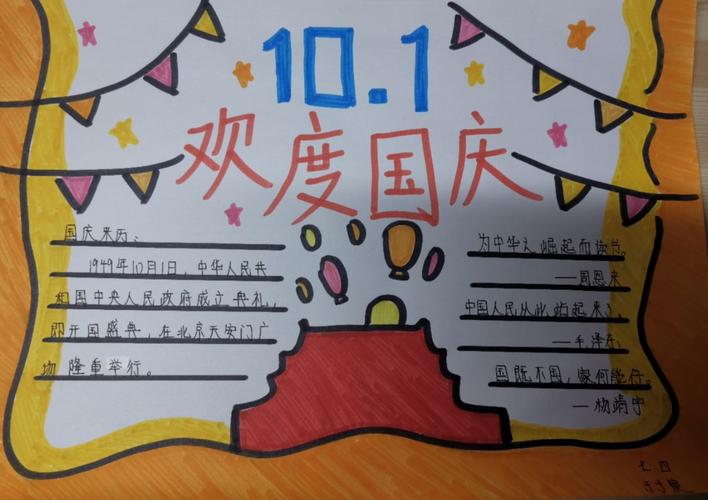 10.1
欢度国庆
国庆来历：
1949年10月1日，中华人民共
和国中央人民政府成立典礼，
即开国盛典，在北京天安门广
场隆重举行。
为中华之崛起而读书。
——周恩来
中国人民从此站起来了。
——毛泽东
国既不国，家何能存。
——杨靖宇
七四